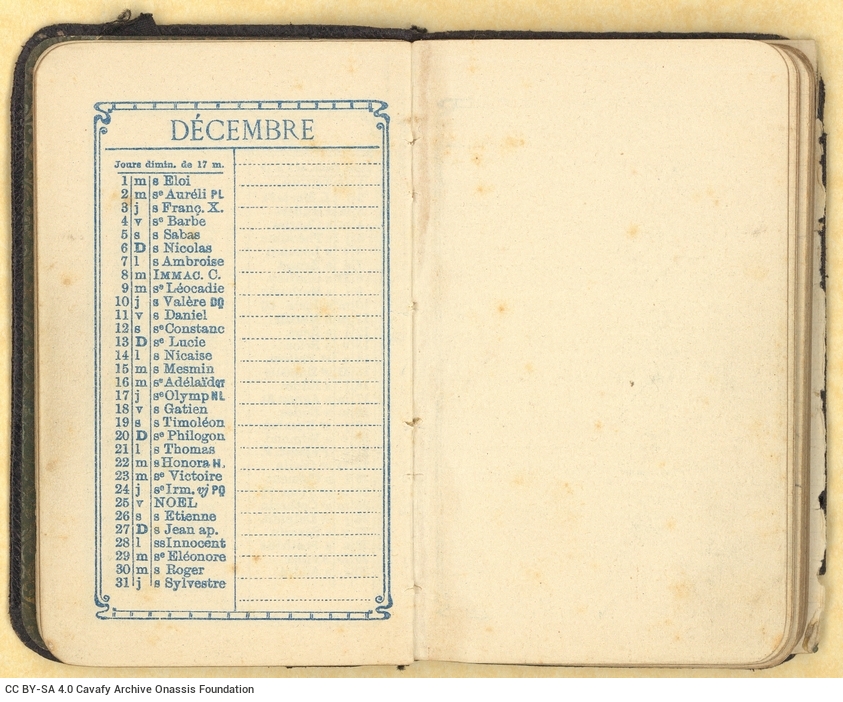 DÉCEMBRE
Jours dimin. de 17 m.
1 m s Eloi
2 m sᵉ Auréli PL
3 j s Franç. X.
4 v sᵉ Barbe
5 s s Sabas
6 D s Nicolas
7 l s Ambroise
8 m IMMAC. C.
9 m sᵉ Léocadie
10 j s Valère DQ
11 v s Daniel
12 s sᵉ Constanc
13 D sᵉ Lucie
14 l s Nicaise
15 m s Mesmin
16 m sᵉ Adélaïd QT
17 j sᵉ Olymp NL
18 v s Gatien
19 s s Timoléon
20 D sᵉ Philogon
21 l s Thomas
22 m s Honora H.
23 m sᵉ Victoire
24 j sᵉ Irm. vj PQ
25 v NOEL
26 s s Etienne
27 D s Jean ap.
28 l ss Innocent
29 m sᵉ Eléonore
30 m s Roger
31 j s Sylvestre
CC BY-SA 4.0 Cavafy Archive Onassis Foundation